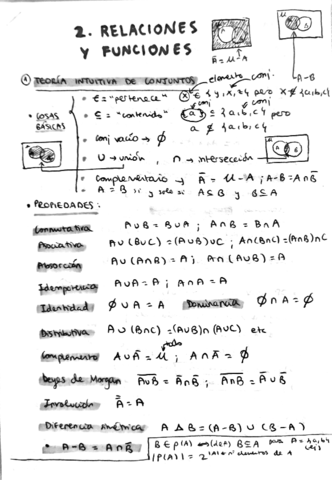 2. RELACIONES
Y FUNCIONES
Ā = U - A
A-B
① TEORÍA INTUITIVA DE CONJUNTOS
elemento conj.
• COSAS BÁSICAS
• ∈ = "pertenece"
x ∈ {y, x, z} pero x ∉ {a, b, c}
conj conj
• ⊆ = "contenido"
{a} ⊆ {a, b, c} pero
a ⊈ {a, b, c}
• conj vacío → ∅
• ∪ → unión, ∩ → intersección
• complementario → Ā = U - A ; A-B = A∩B̄
• A = B si y solo si A ⊆ B y B ⊆ A
• PROPIEDADES:
Conmutativa A∪B = B∪A ; A∩B = B∩A
Asociativa A∪(B∪C) = (A∪B)∪C ; A∩(B∩C) = (A∩B)∩C
Absorción A∪(A∩B) = A ; A∩(A∪B) = A
Idempotencia A∪A = A ; A∩A = A
Identidad ∅∪A = A Dominancia ∅∩A = ∅
Distributiva A∪(B∩C) = (A∪B)∩(A∪C) etc
todo
Complemento A∪Ā = U ; A∩Ā = ∅
Leyes de Morgan A̅∪̅B̅ = Ā∩B̄ ; A̅∩̅B̅ = Ā∪B̄
Involución A̿ = A
Diferencia simétrica A △ B = (A-B) ∪ (B-A)
• A-B = A∩B̄
B ∈ P(A) B ⊆ A para A =
|P(A)| = 2 nº elementos de A